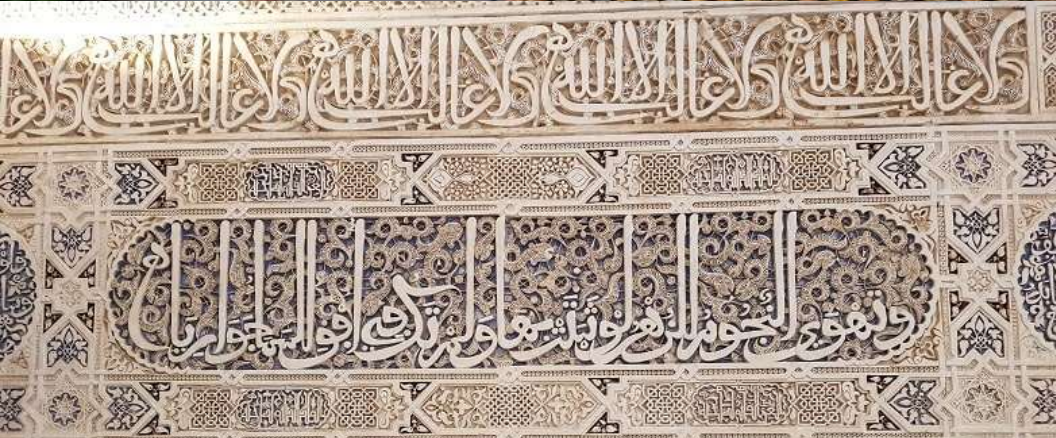 ولا غالب الا الله ولا غالب الا الله ولا غالب الا الله ولا غالب الا الله ولا غا
وتهوى النجوم الزهر لو ثبتت بها ولم تك في افق السما جواريا